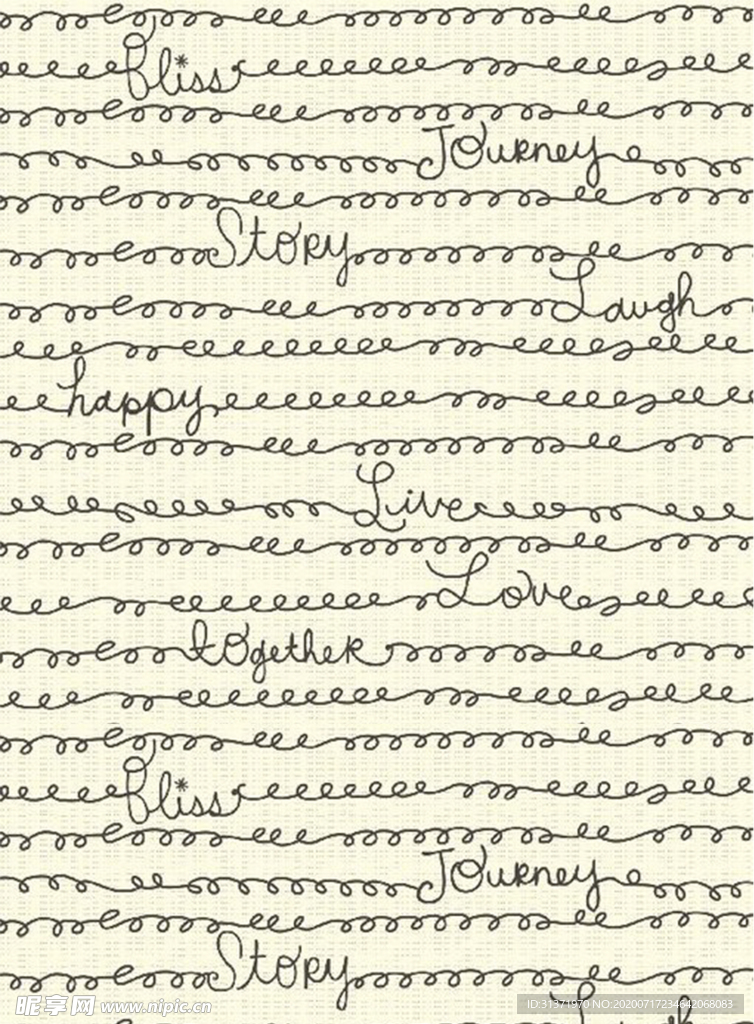 Bliss
Journey
Story
Laugh
happy
Live
Love
together
Bliss
Journey
Story
昵享网 www.nipic.cn
ID:31371970 NO:20200717234642068083